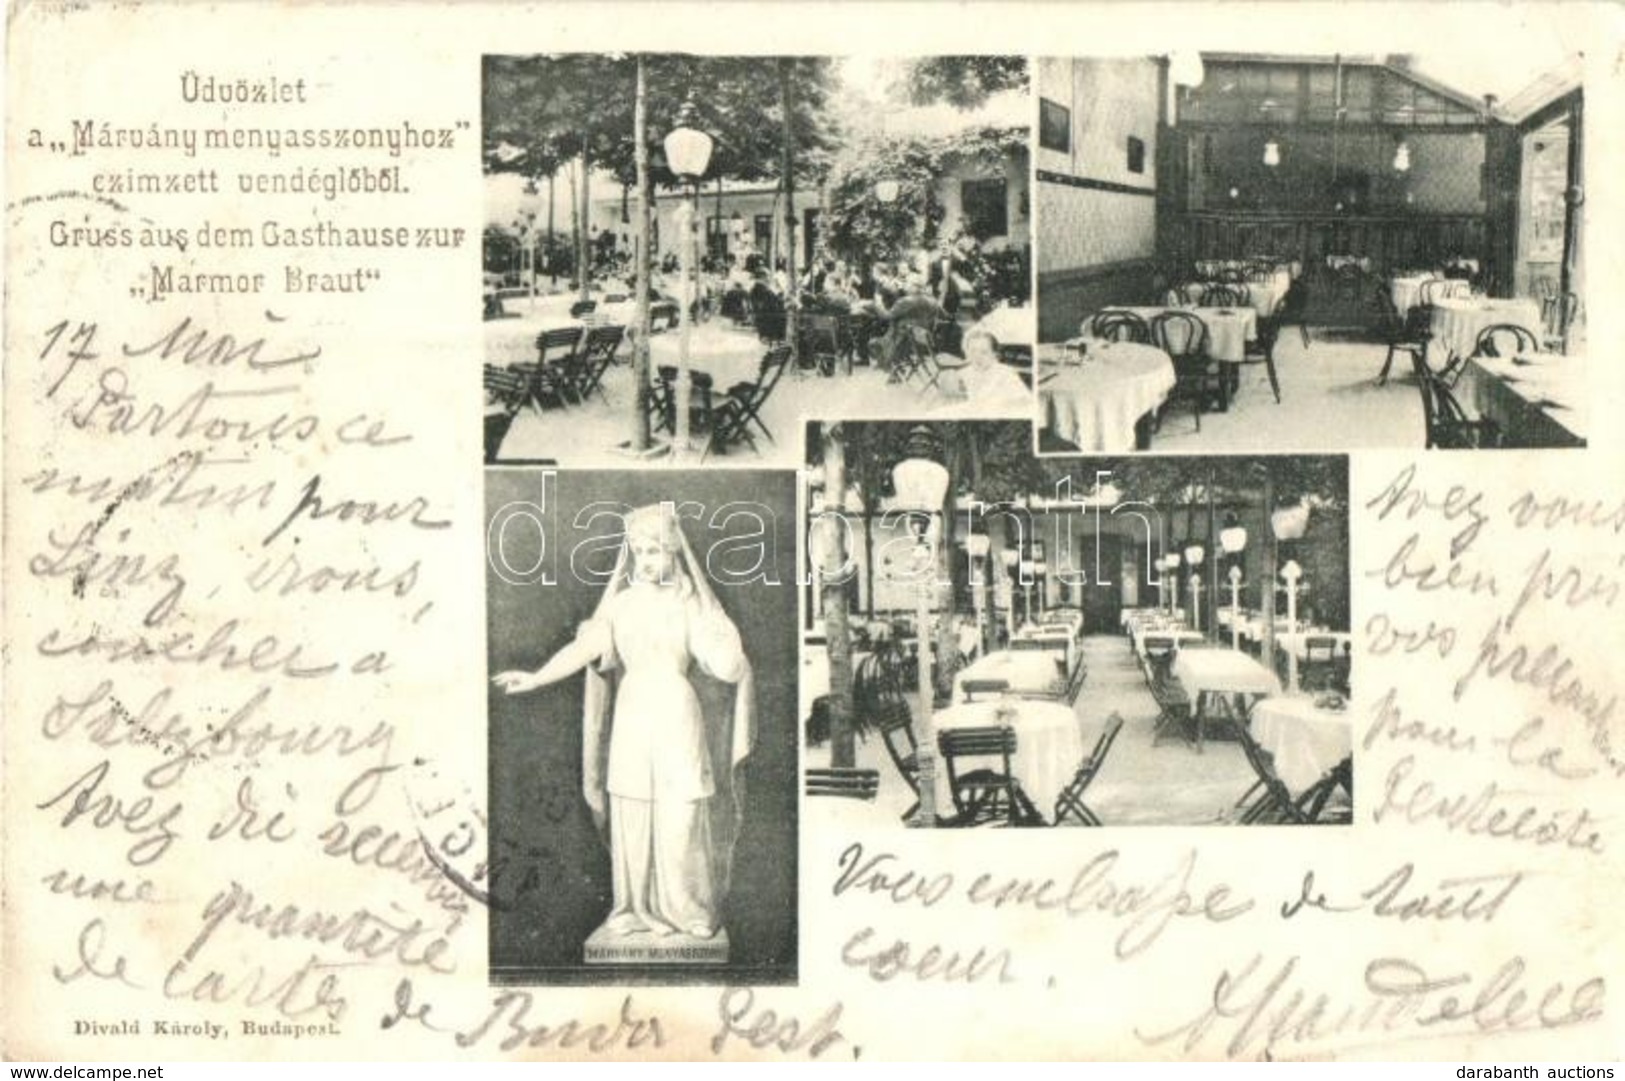 Üdvözlet
a „Márvány menyasszonyhoz"
czimzett vendéglőből.
Gruss aus dem Gasthause zur
„Marmor Braut“
17 Mai
Partons ce
matin pour
Linz, irons,
coucher a
Salzbourg
Avez dû recevoir
une quantité
de cartes de Buda Pest.
Avez vous
bien pris
vos
pour la
Pentecôte
Vous embrasse de tout
coeur.
MÁRVÁNY MENYASSZONY
darabanth
Divald Károly, Budapest.
darabanth auctions